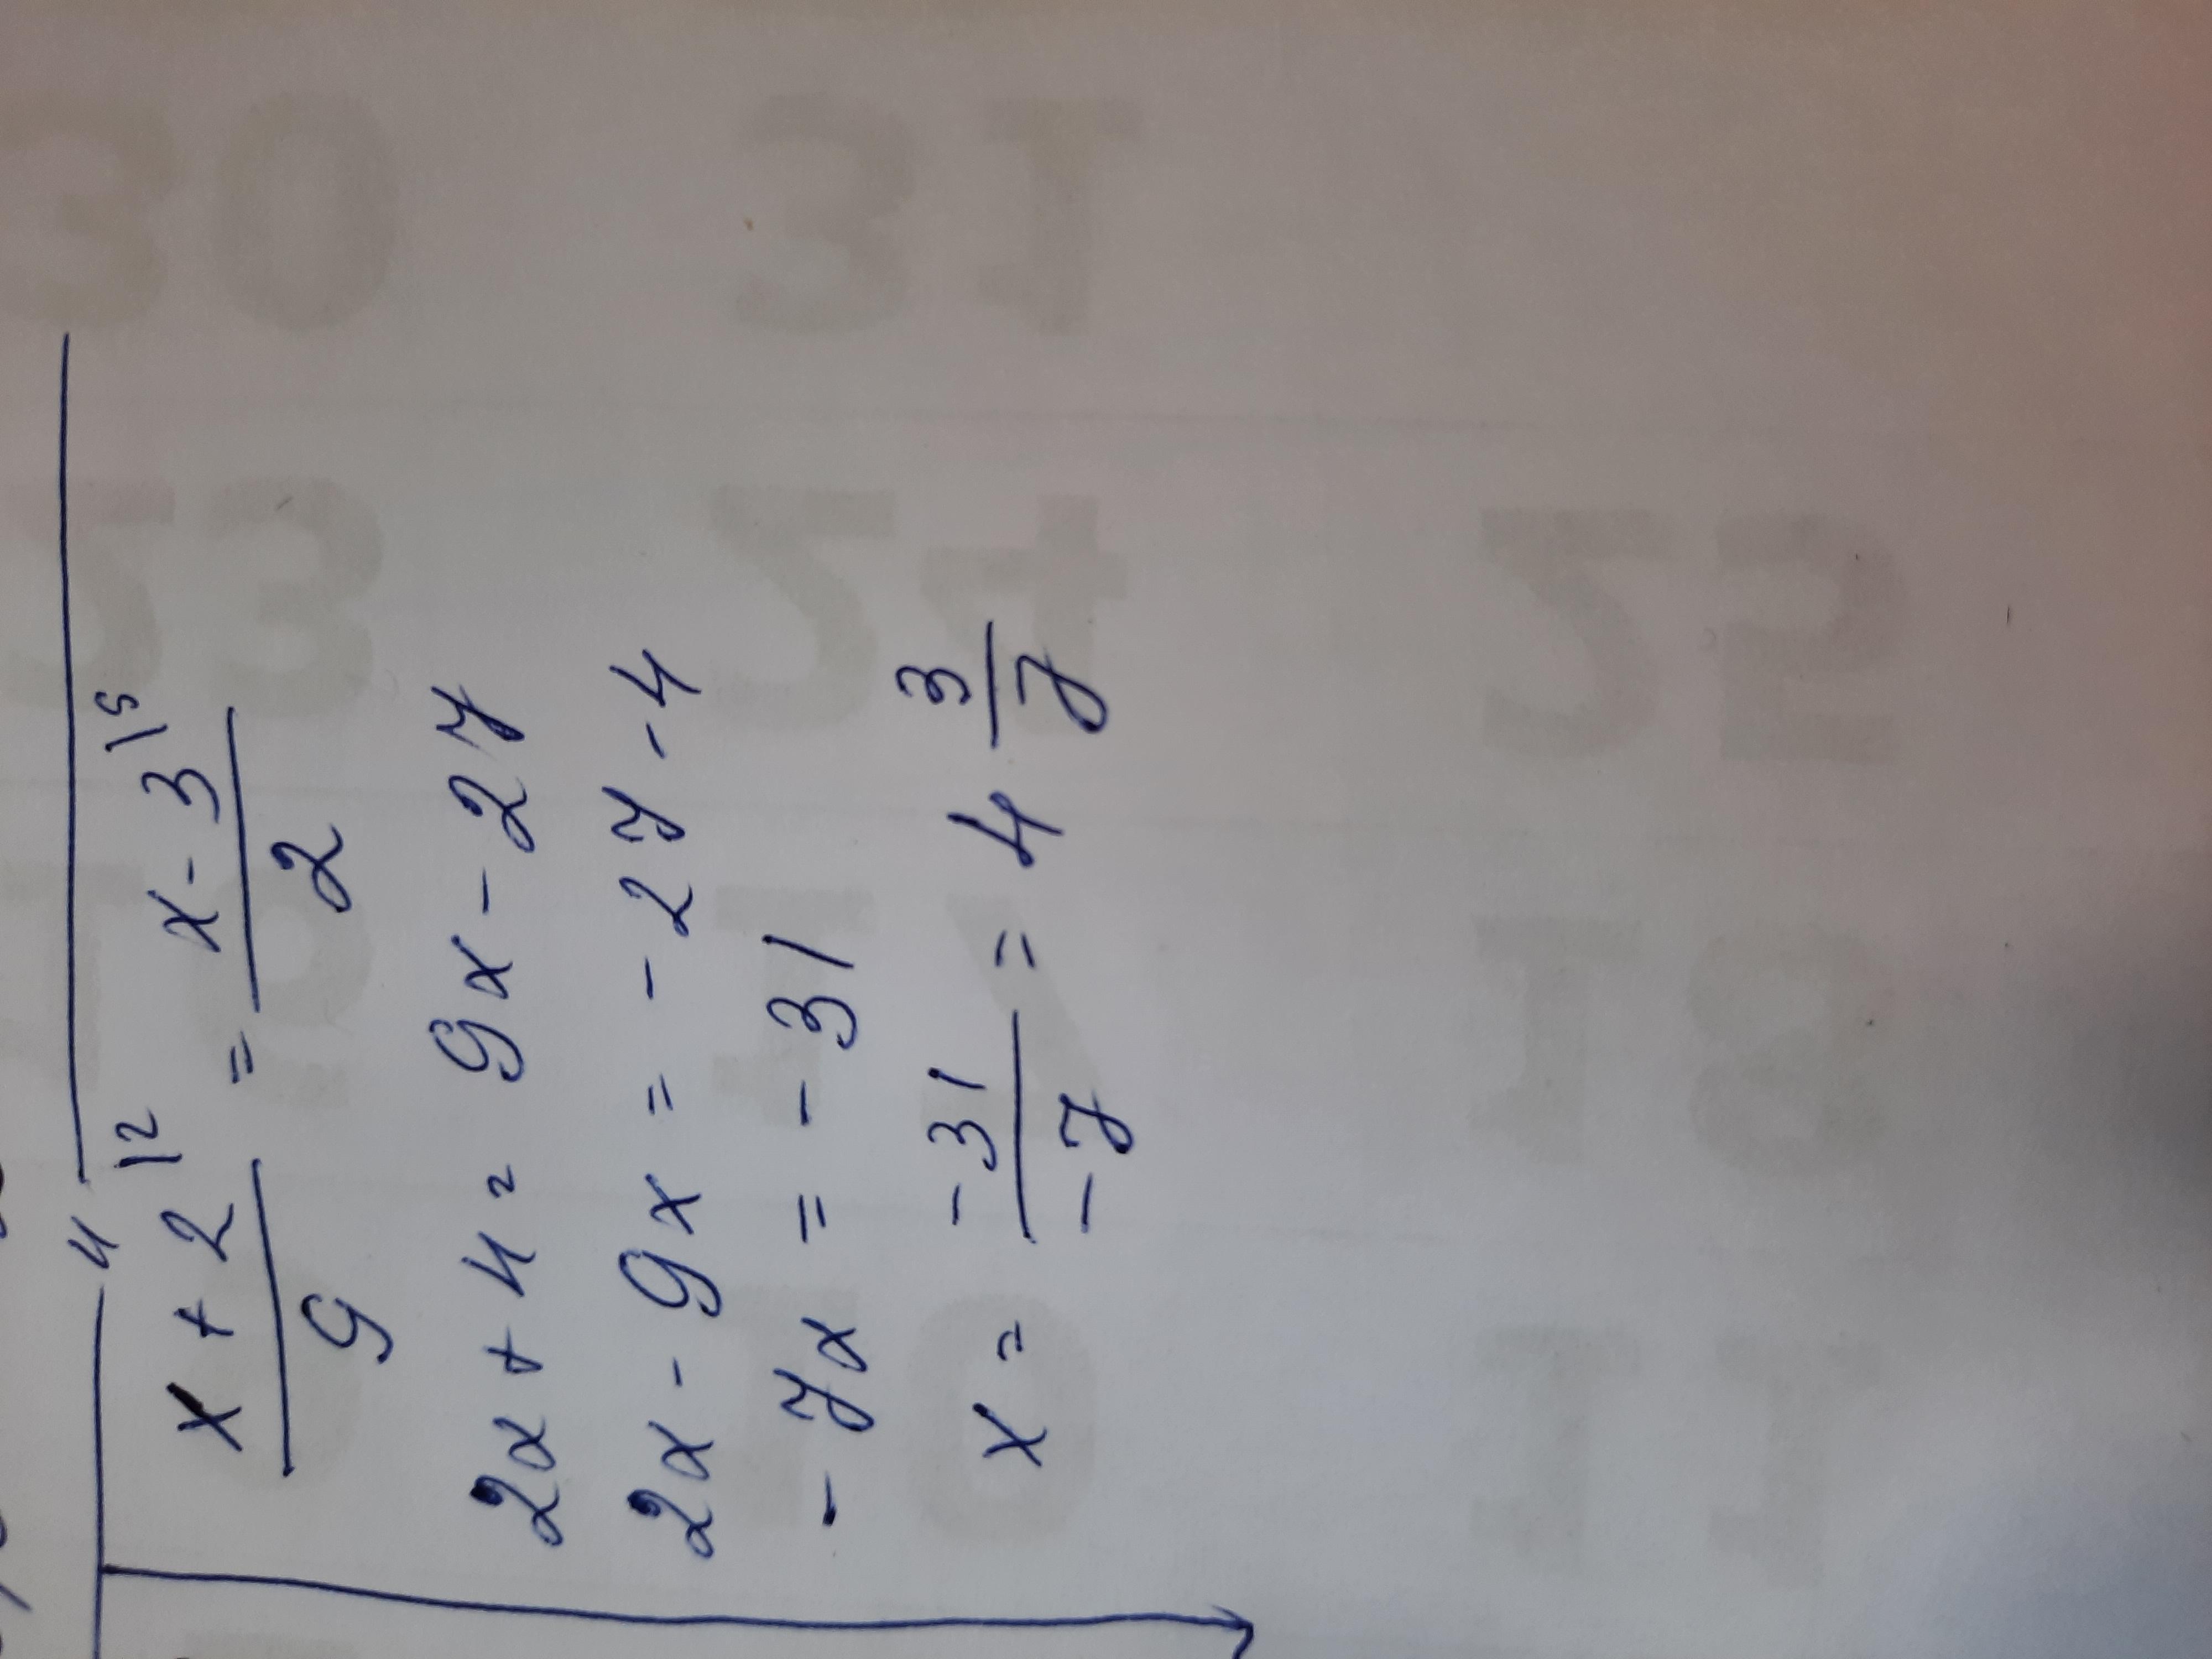 x + 2 |2 = x - 3 |9
9 2
2x + 4 = 9x - 27
2x - 9x = - 27 - 4
- 7x = - 31
x = -31/-7 = 4 3/7